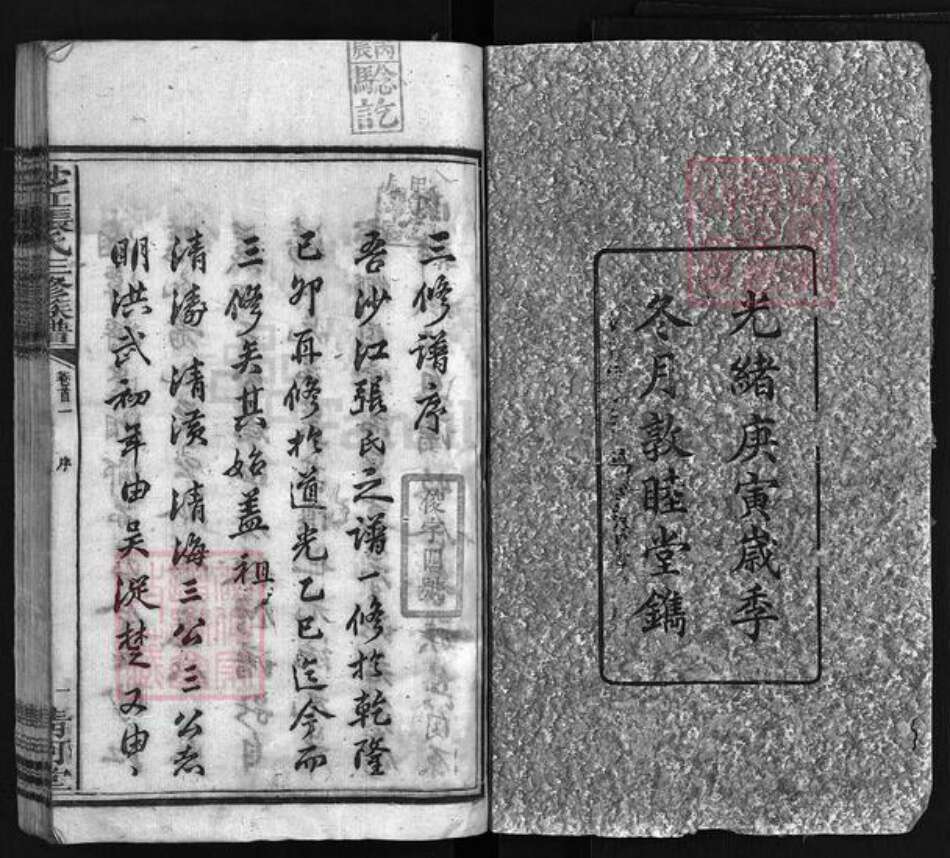 光緒庚寅歲季
冬月敦睦堂鐫
驗訖
三修譜序
吾沙江張氏之譜一修於乾隆
己卯再修於道光乙巳迄今而
三修矣其始蓋祖
清濤清濱清海三公三公者
明洪武初年由吳泛楚又由
沙江張氏三修族譜
卷首一
序
一
清河堂